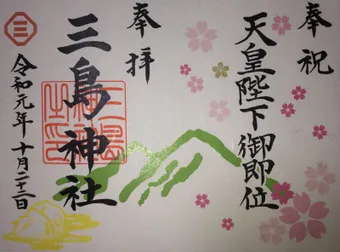 奉祝
天皇陛下御即位
奉拝
三島神社
令和元年十月二十二日